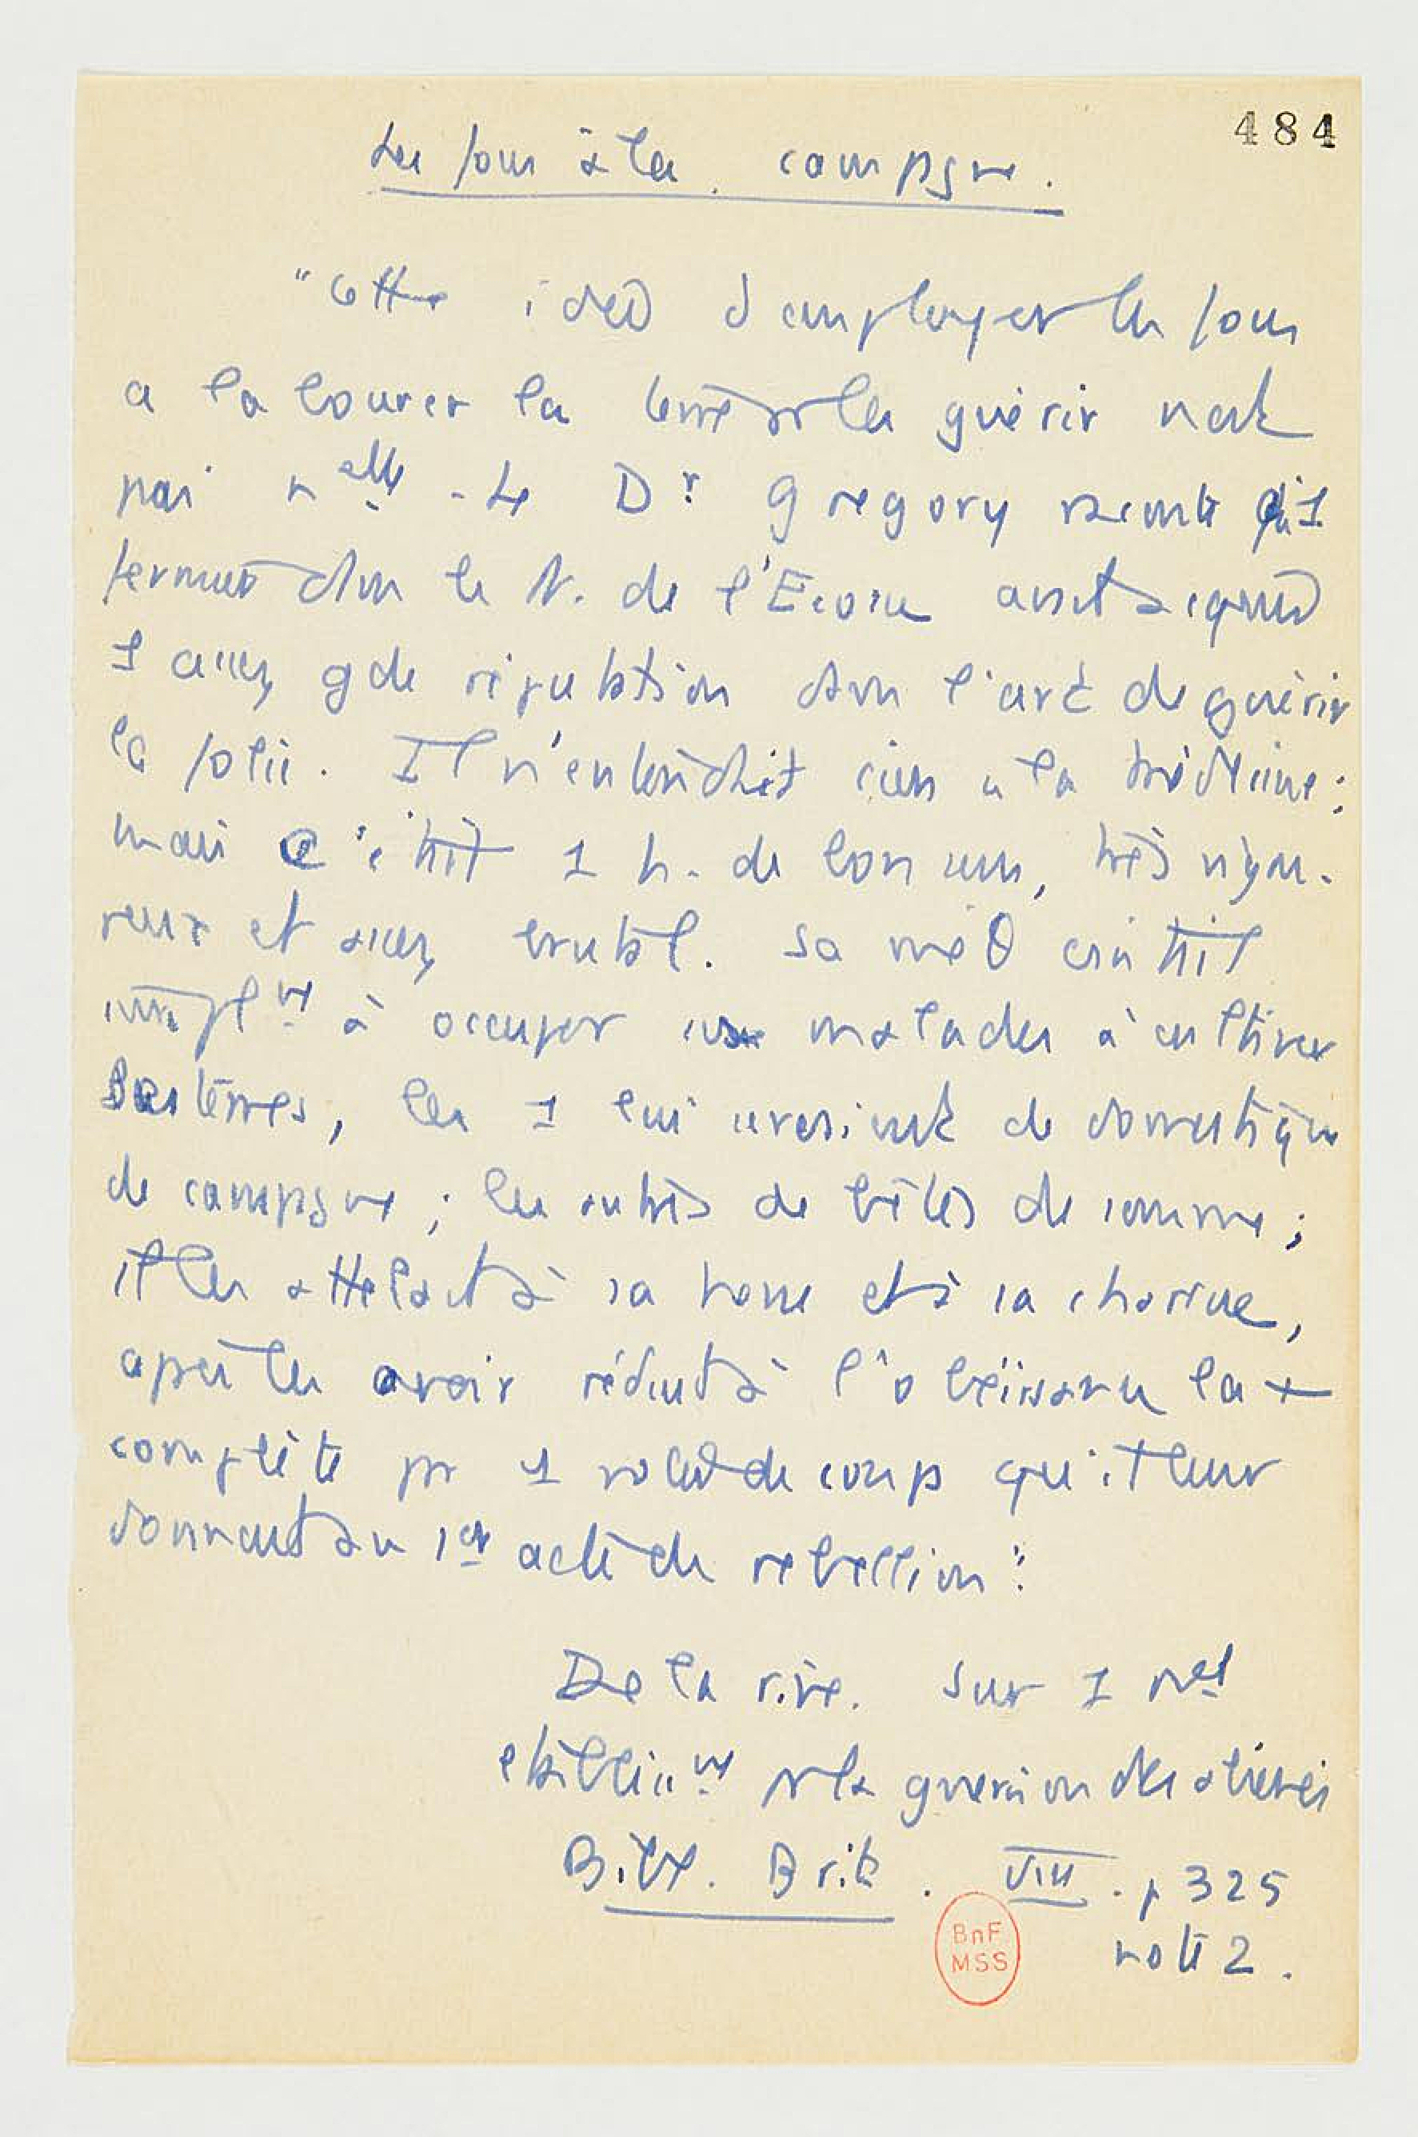 484
Les fous à la campagne.
"Cette idée d'employer les fous
a labourer la terre pr les guérir n'est
pas nelle - Le Dr Gregory raconte qu'1
fermier dans le N. de l'Ecosse avait acquis
1 assez gde réputation dans l'art de guérir
la folie. Il n'entendait rien a la médecine;
mais c'était 1 h. de bon sens, très vigou-
reux et assez brutal. Sa méθ consistait
simplmt à occuper ses malades à cultiver
ses terres, les 1 lui servaient de domestiques
de campagne; les autres de bêtes de somme;
il les attelait à sa herse et à sa charrue,
après les avoir réduits à l'obéissance la +
complète par 1 volée de coups qu'il leur
donnait au 1er acte de rebellion".
De la rive. Sur 1 nel
établissmt pr la guérison des aliénés
Bibl. Brit. VIII. p 325
note 2.
BnF
MSS